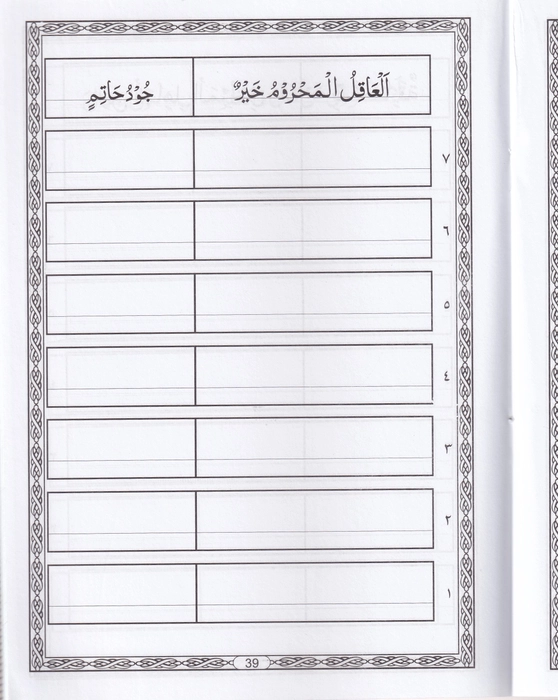 اَلْعَاقِلُ الْمَحْرُوْمُ خَيْرٌ
جُوْدُ حَاتِمٍ
٧
٦
٥
٤
٣
٢
١
39